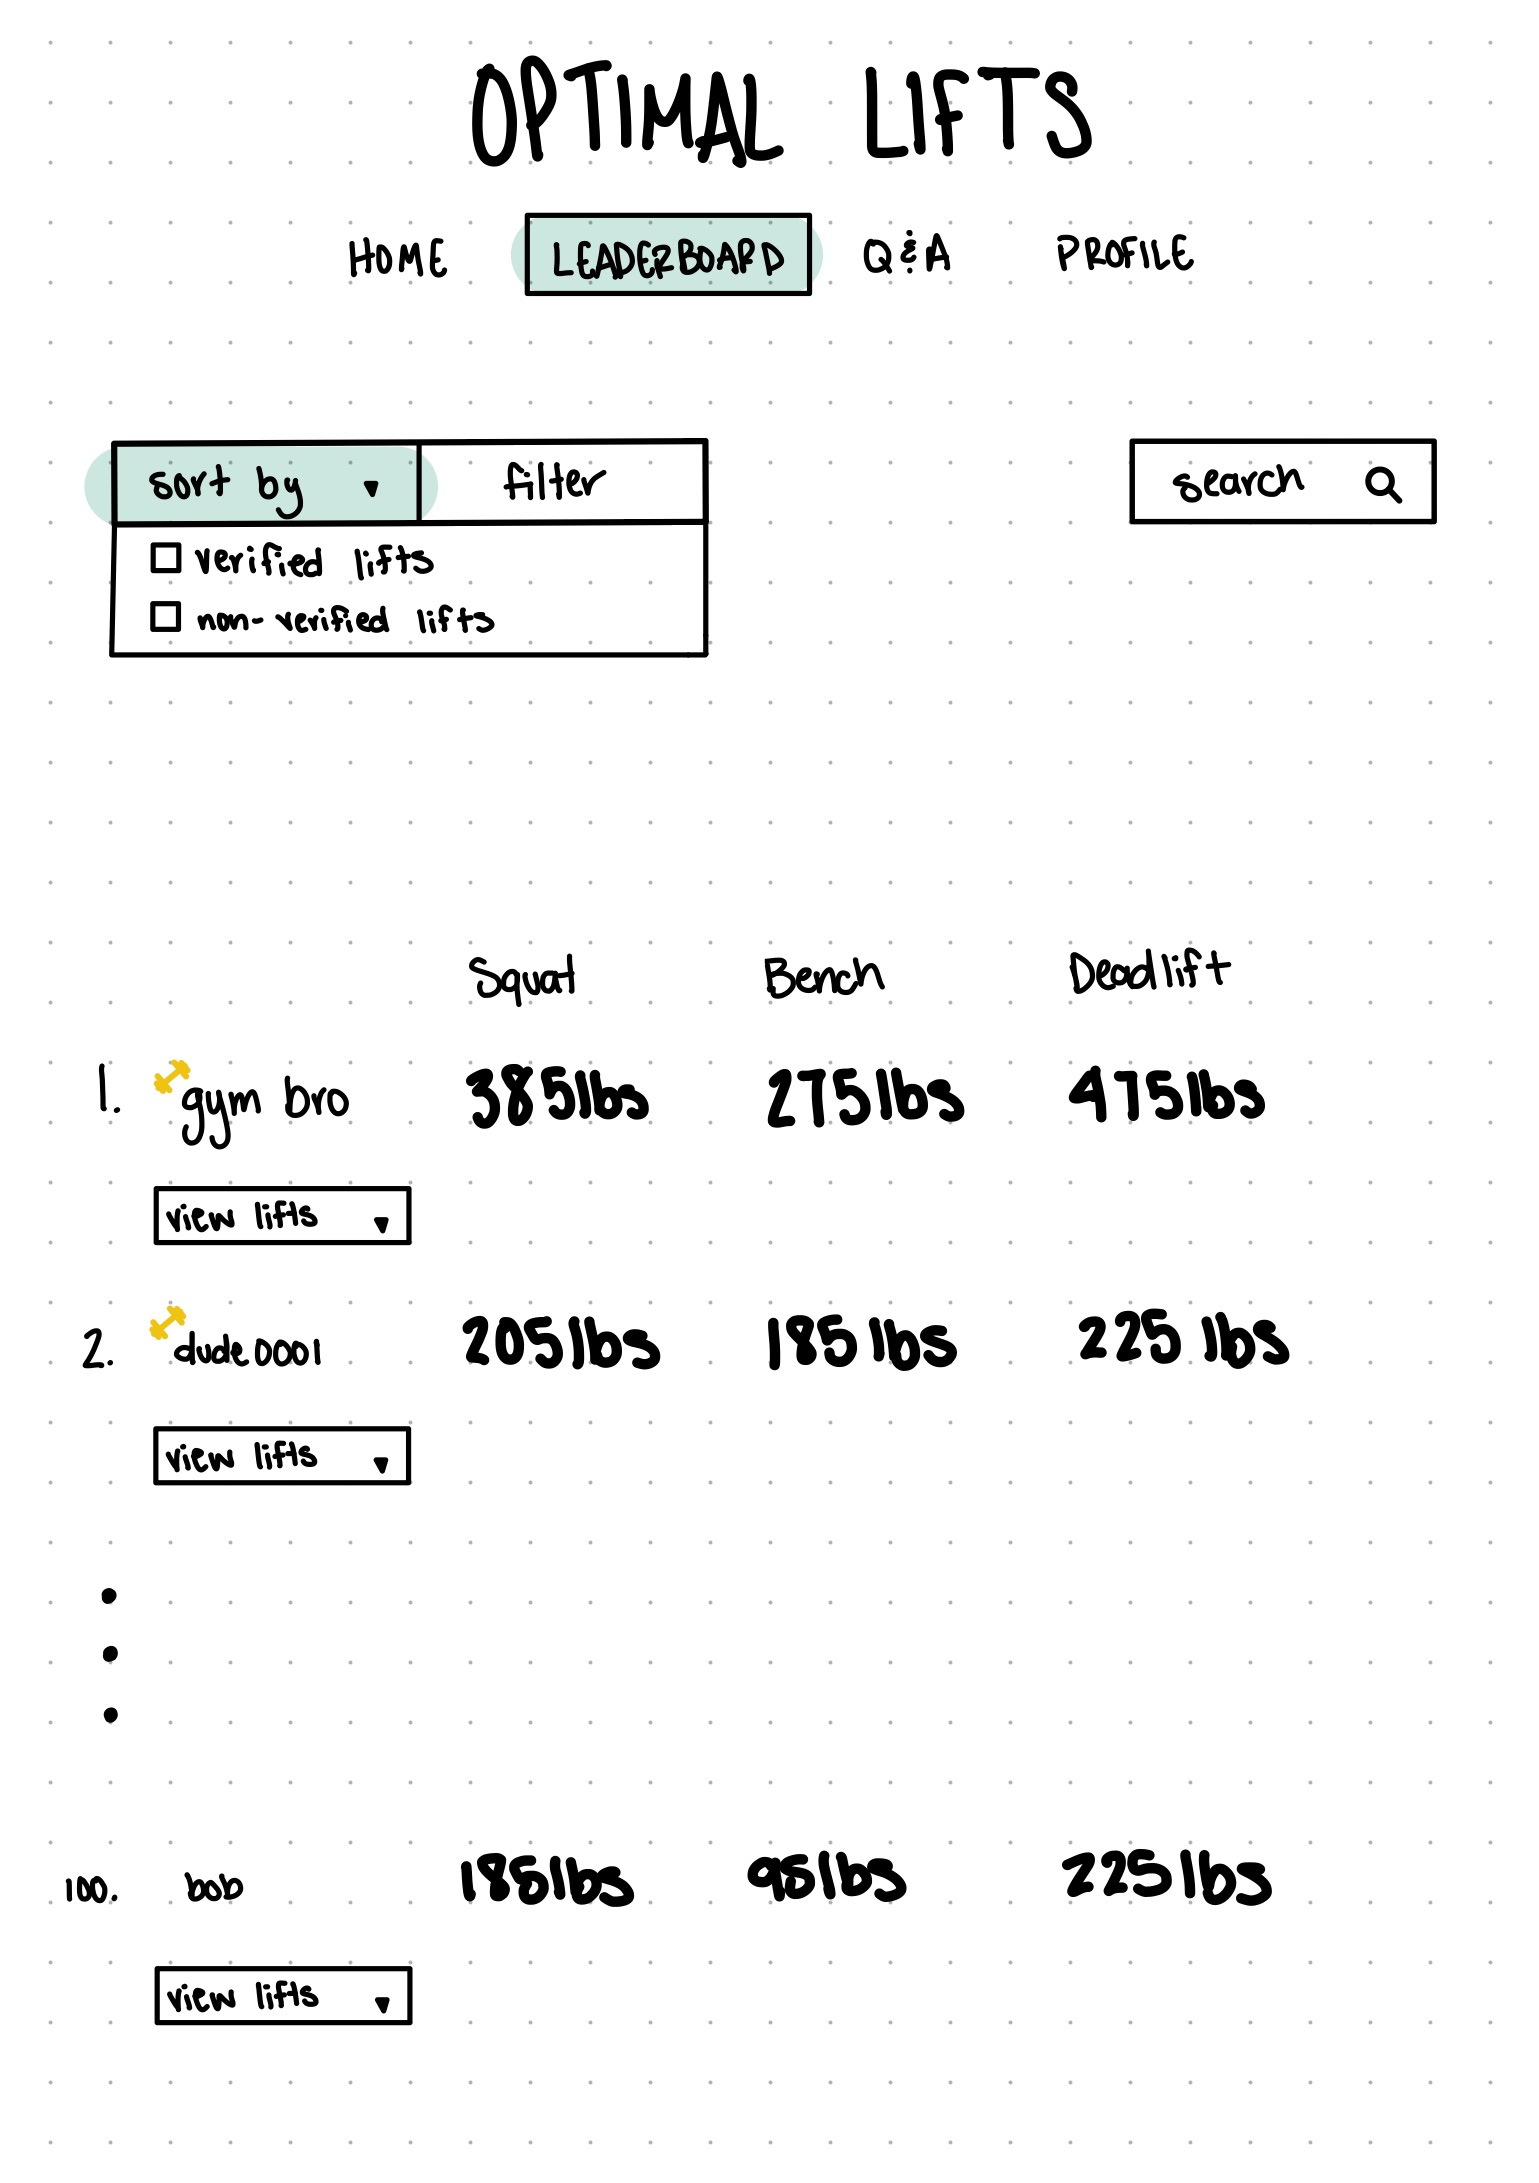 OPTIMAL LIFTS
HOME LEADERBOARD Q&A PROFILE
sort by ▼ filter search
verified lifts
non-verified lifts
Squat Bench Deadlift
1. gym bro 385lbs 275lbs 475lbs
view lifts ▼
2. dude0001 205lbs 185lbs 225 lbs
view lifts ▼
100. bob 185lbs 95lbs 225lbs
view lifts ▼